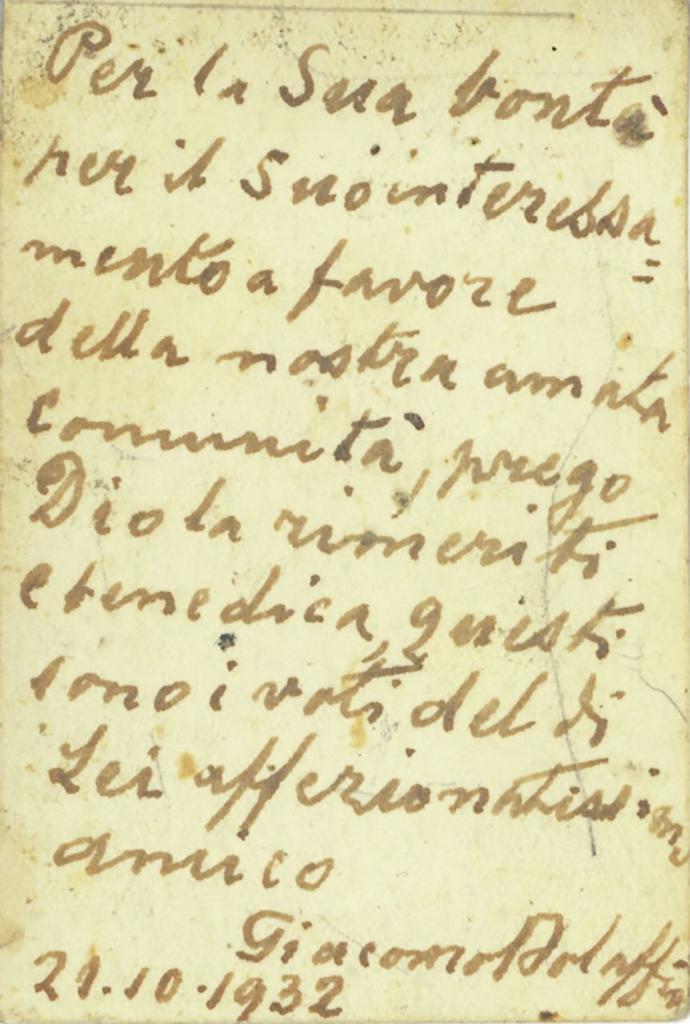 Per la Sua bontà
per il Suo interessa
=
mento a favore
della nostra amata
comunità, prego
Dio la rimeriti
e benedica, questi
sono i voti del di
Lei affezionatissimo
amico
Giacomo Bolaffio
21.10.1932